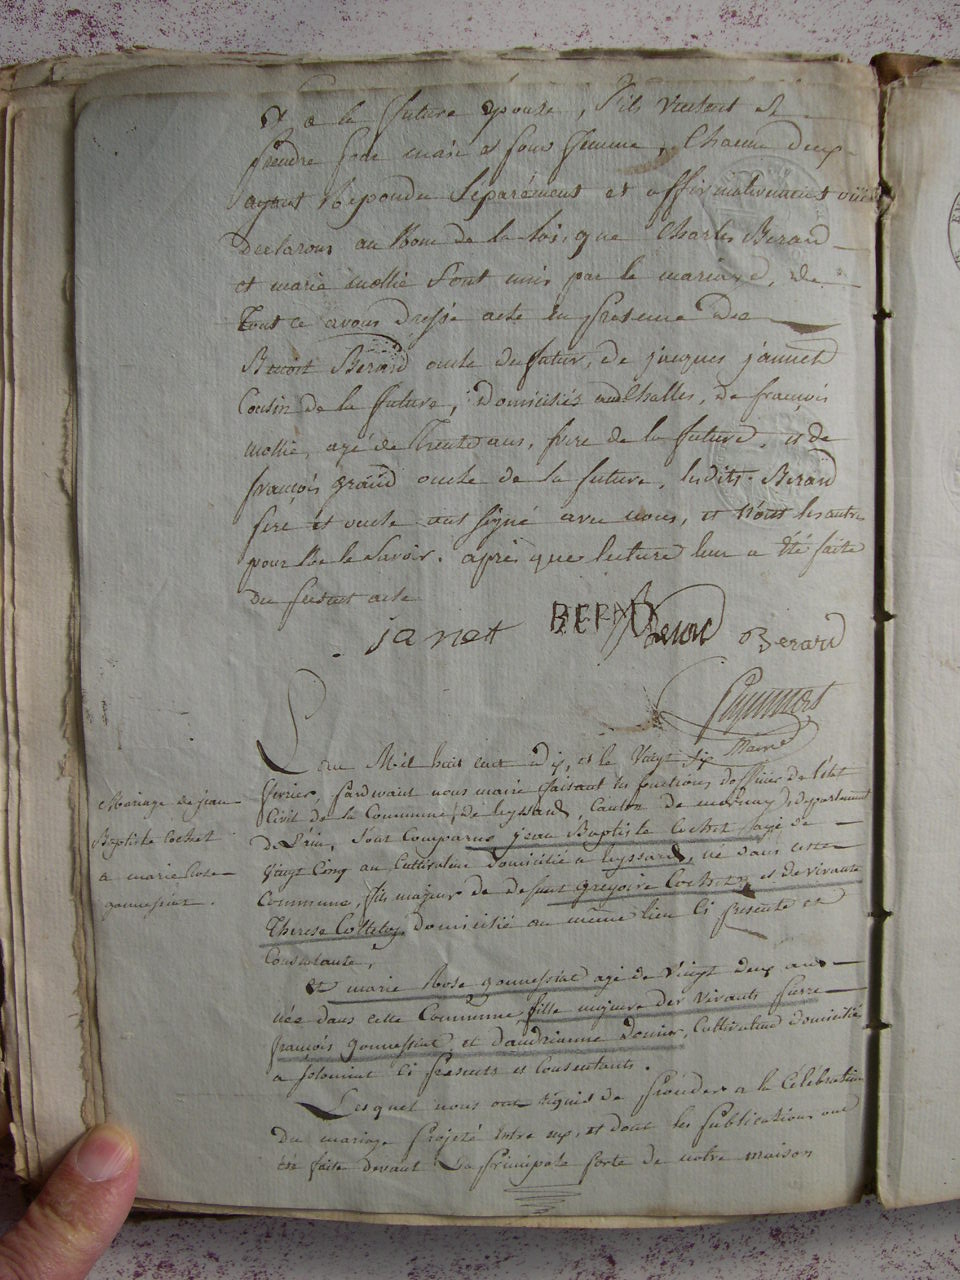 et a la future epouse, s'ils veulent se
prendre pour mari et pour femme, chacun d'eux
ayant repondu separément et affirmativement
declarons au nom de la loi, que Charles Berard
et marie mollie sont unis par le mariage, de
tout ce avons dressé acte en presence de
Benoit Berard oncle du futur, de jacques jannet
Cousin de la future, domiciliés aud Challes, de françois
mollie, agé de trente ans, frere de la future, et de
françois grand oncle de la future, lesdits Berard
pere et oncle ont signé avec nous, et non les autres
pour ne le savoir. après que lecture leur a été faite
du present acte
janet BERARD Berard Berard
Maire
L'an Mil huit cent dix, et le vingt six
fevrier, pardevant nous maire faisant les fonctions d'officier de l'état
Civil de la Commune de leyssard, Canton de departement
de L'ain, sont comparus jean Baptiste Cochet agé de
vingt Cinq ans Cultivateur domicilié a leyssard, né dans cette
Commune, fils majeur de defunt gregoire Cochet et de vivante
Therese domicilié au même lieu ci presente et
Consentante,
et marie Rose gonnessiat agé de vingt deux ans
née dans cette Commune, fille majeure des vivants pierre
françois gonnessiat, et d'andrianne Cultivateur domicilié
a solomiat ci presents et Consentants.
Lesquels nous ont requis de proceder a la Celebration
du mariage projeté entre eux, et dont les publications ont
été faite devant la principale porte de notre maison
Mariage de jean
Baptiste Cochet
a marie Rose
gonnessiat.